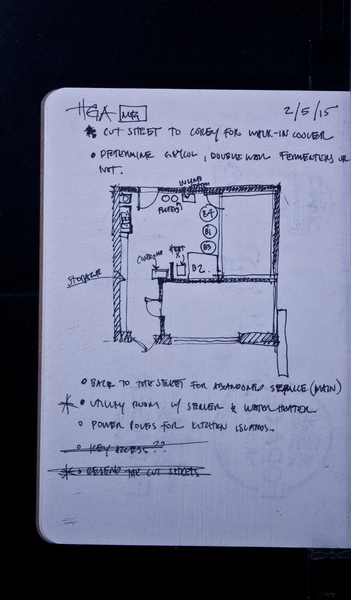 HGA MTG 2/5/15
* CUT SHEET TO COREY FOR WALK-IN COOLER
• DETERMINE GLYCOL, DOUBLE WALL FERMENTERS OR
NOT.
B4
B1
B3
B2.
STORAGE
• BACK TO THE STREET FOR ABANDONED SERVICE (MAIN)
* • UTILITY ROOM W/ SEWER & WATER HEATER
• POWER POLES FOR KITCHEN ISLANDS.
• KEY ACCESS??
* • RESEND THE CUT SHEETS